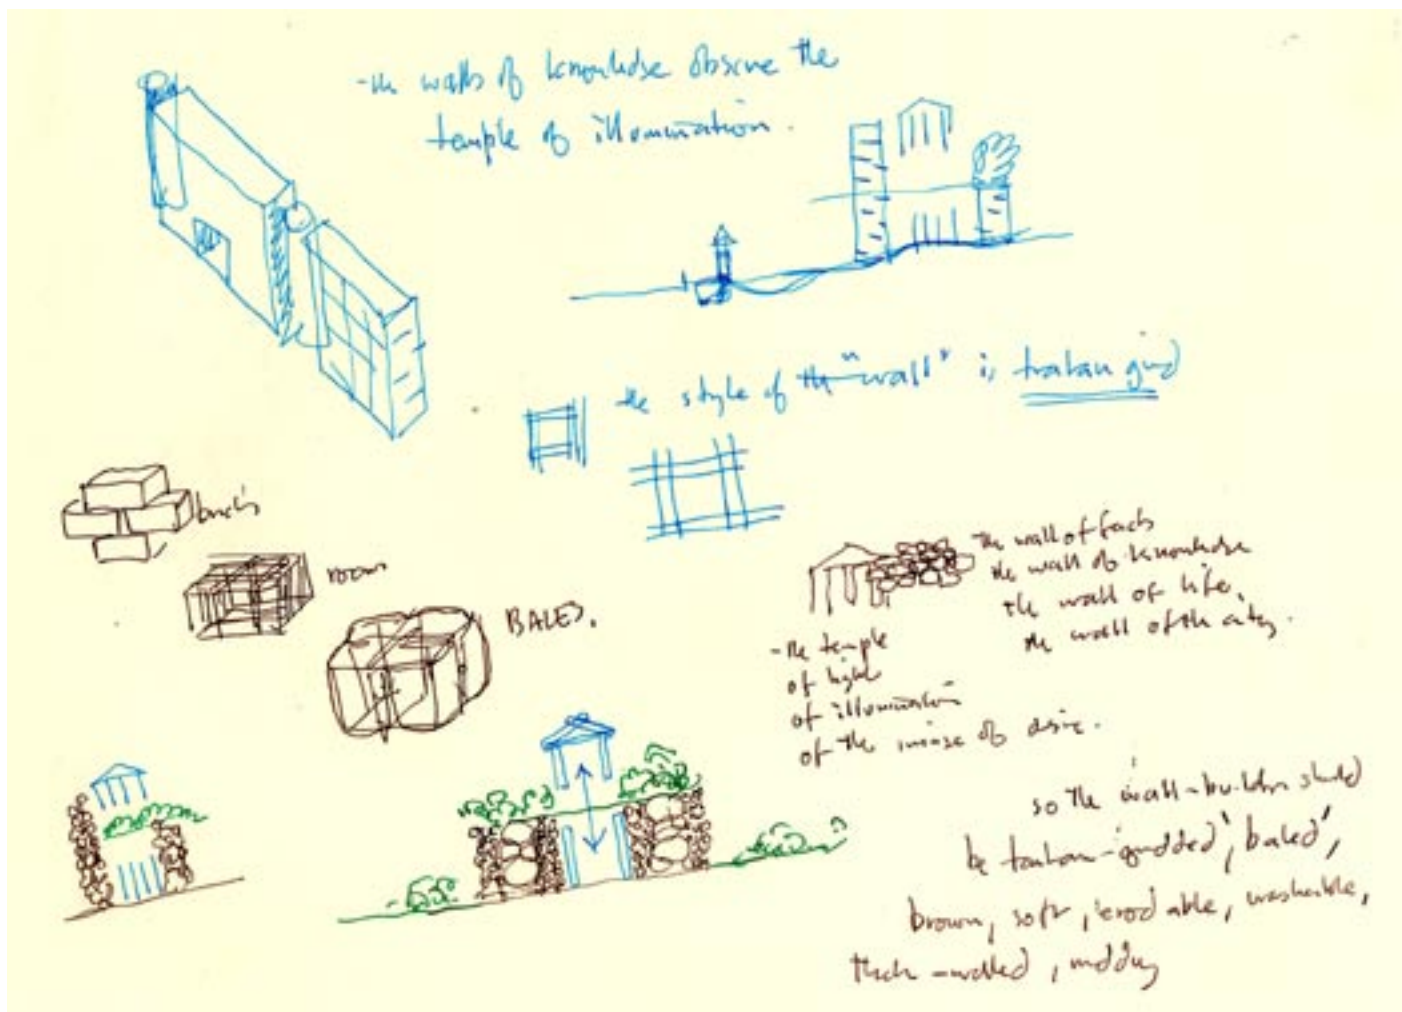 - the walls of knowledge obscure the
temple of illumination.
the style of the "wall" is tartan grid
bricks
room
BALES.
the wall of facts
the wall of knowledge
the wall of life,
the wall of the city.
- the temple
of light
of illumination
of the image of desire.
so the wall-builders should
be tartan-gridded, 'baled',
brown, soft, erodable, washable,
thick-walled,